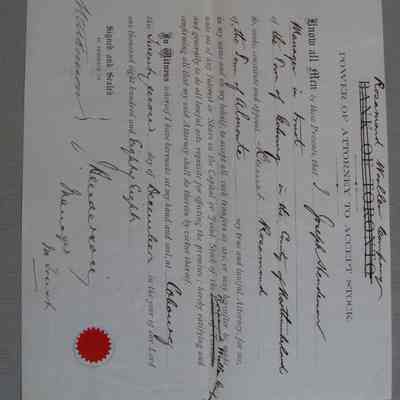 Rosamond Woollen Company
BANK OF TORONTO
POWER OF ATTORNEY TO ACCEPT STOCK.
Know all Men by these Presents, that I Joseph Henderson
Manager in Trust
of the Town of Cobourg in the County of Northumberland
do make, constitute and appoint Bennett Rosamond
of the Town of Almonte my true and lawful Attorney, for me,
in my name and on my behalf, to accept all such transfers as are, or may hereafter be made
unto me of any Interest or Share in the Capital or Joint Stock of the Rosamond Woollen Co
and generally to do all lawful acts requisite for effecting the premises; hereby ratifying and
confirming all that my said Attorney shall do therein by virtue thereof.
In Witness whereof I have hereunto set my hand and seal, at Cobourg
the Twenty second day of December in the year of our Lord
one thousand eight hundred and Eighty Eight
Signed and Sealed
IN PRESENCE OF
J Henderson
Manager
In Trust